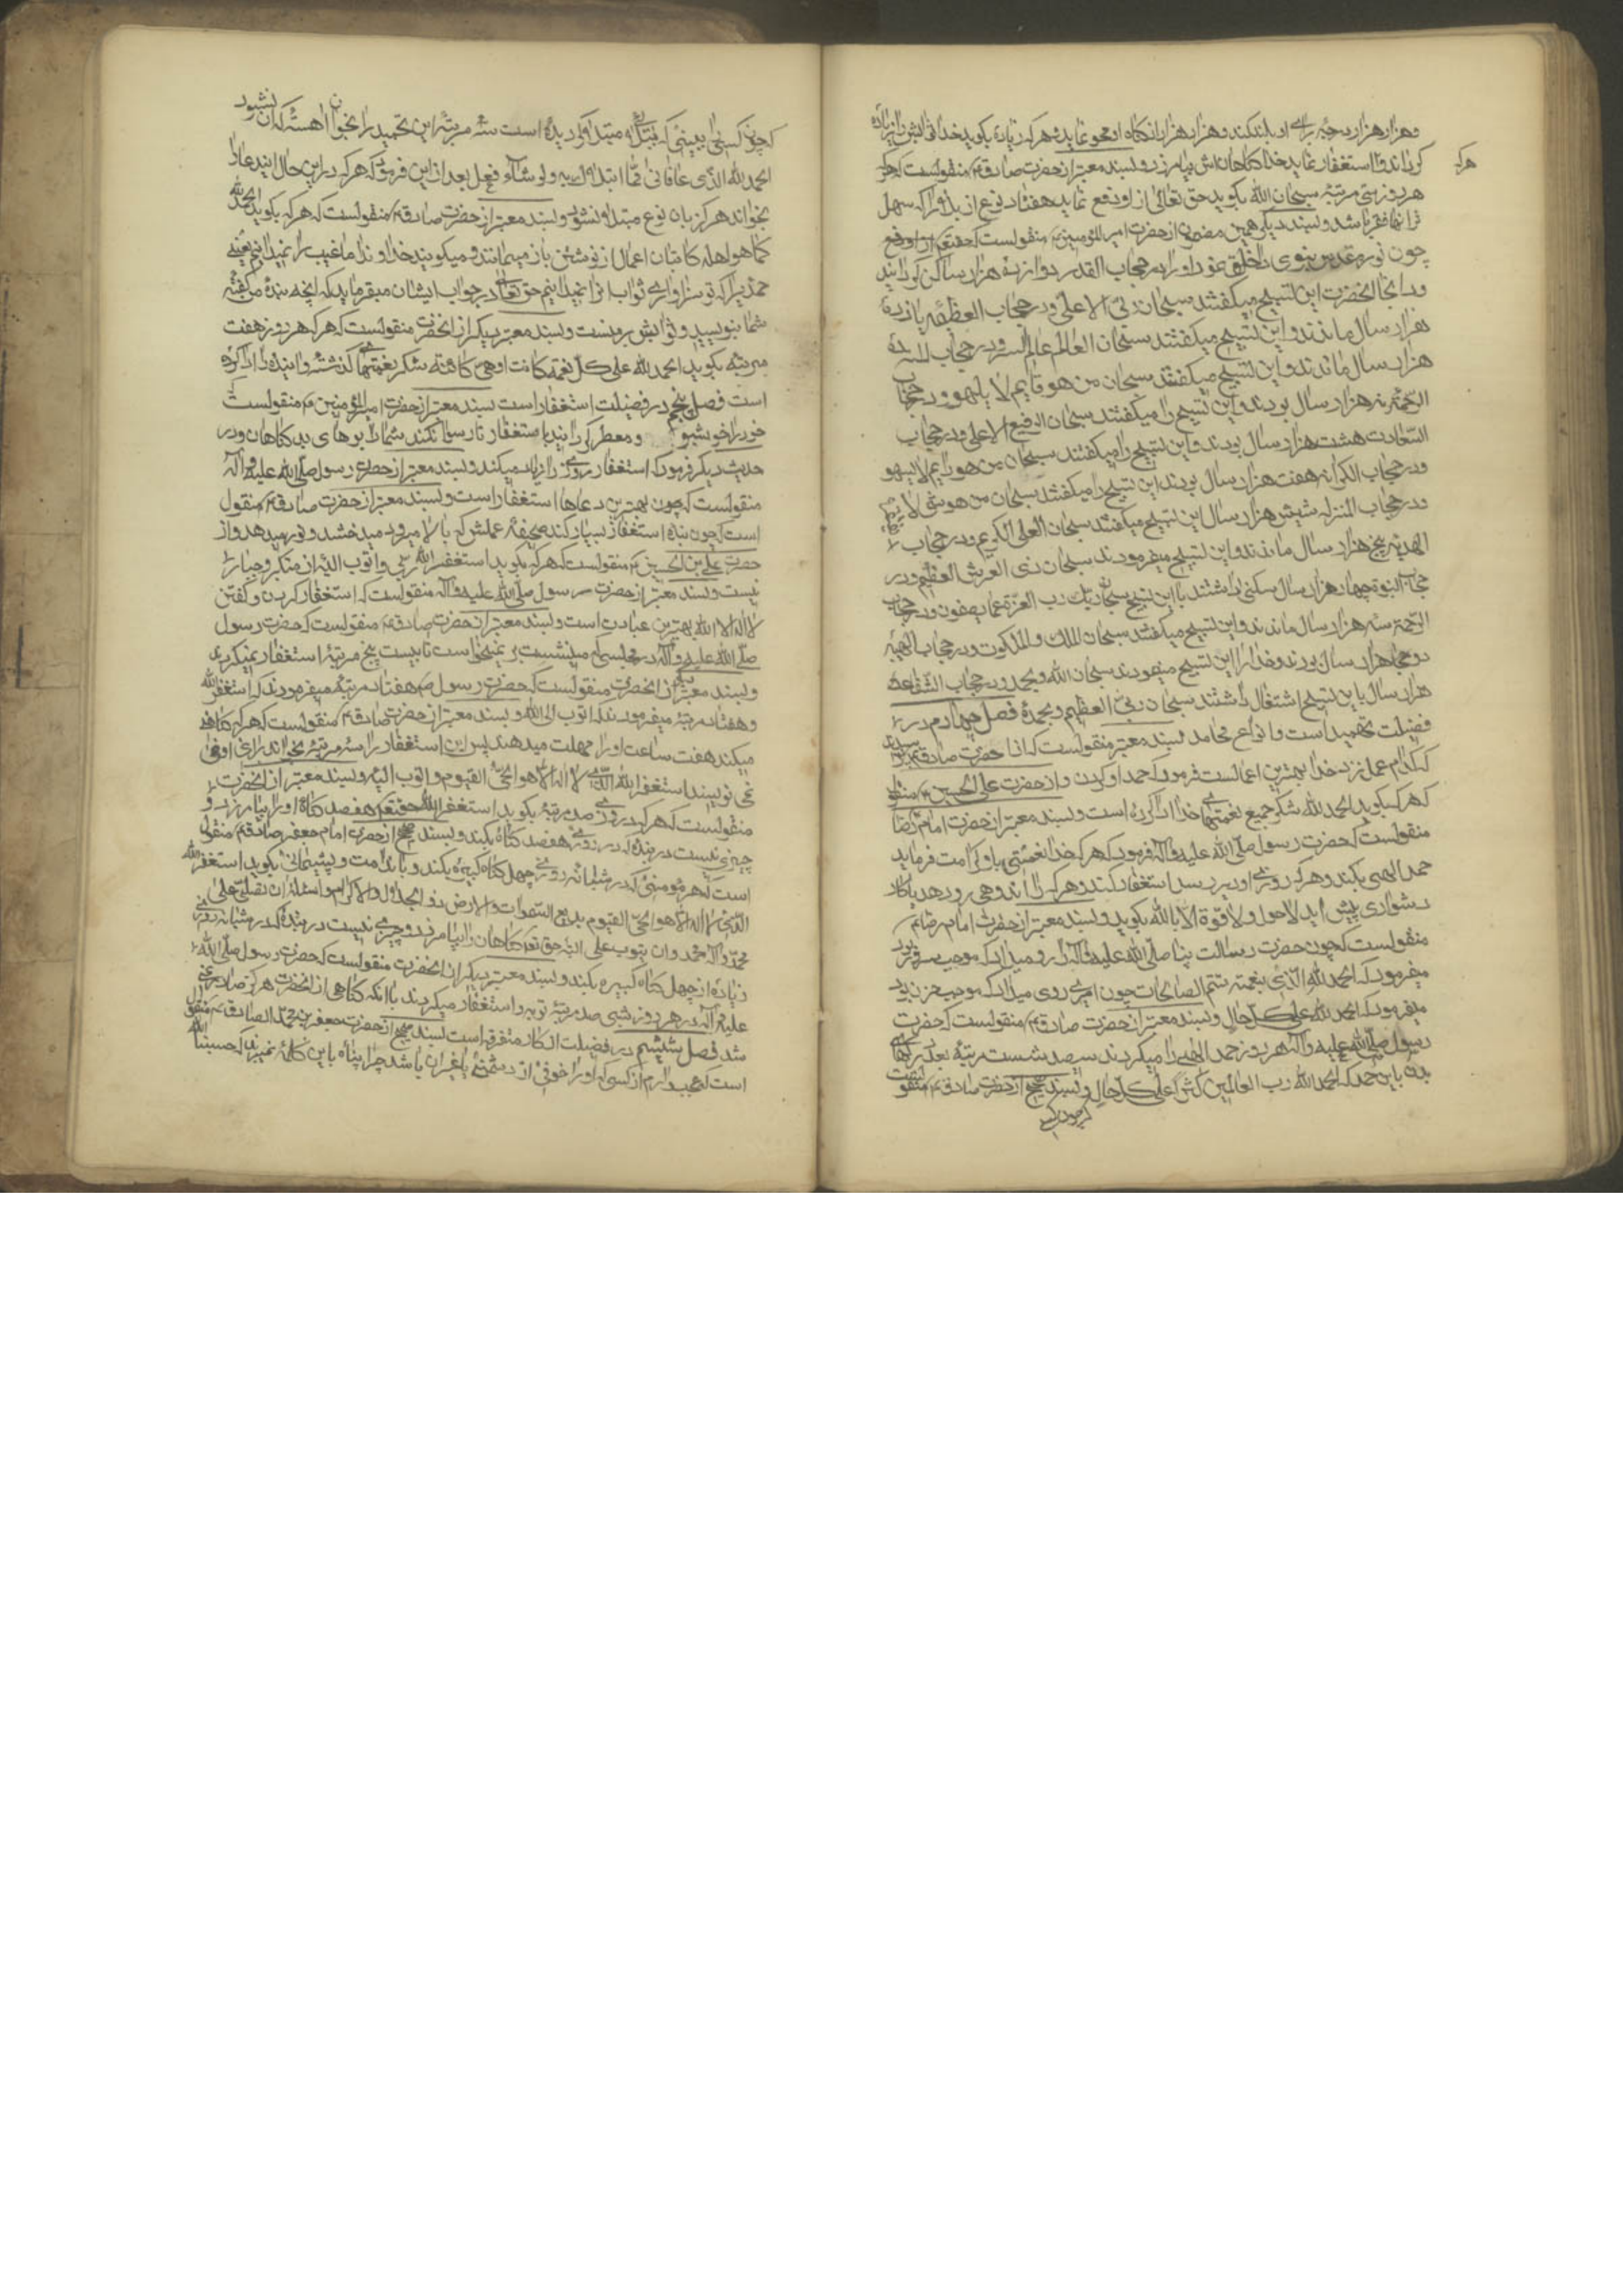 و هزار هزار درجه برای او بلند کند و هزار هزار از گناه او محو نماید و هر که زیاده بگوید خدا ثوابش را زیاده
گرداند و اگر استغفار نماید خدا گناهان اش بیامرزد و بسند معتبر از حضرت صادق ع منقولست که هر که
هر روز سی مرتبه سبحان الله بگوید حق تعالی از او دفع نماید هفتاد نوع از بلا را که سهل
تر انها فقر باشد و بسند دیگر همین مضمون از حضرت امیرالمؤمنین ع منقولست که
چون نور مقدس نبوی را خلق نمود او را در حجاب القدره دوازده هزار سال ساکن گردانید
و در انجا انحضرت این تسبیح میگفتند سبحان ربی الاعلی و در حجاب العظمه یازده
هزار سال ماندند و این تسبیح میگفتند سبحان العالم عالم السر و در حجاب المنه ده
هزار سال ماندند و این تسبیح میگفتند سبحان من هو قایم لا یلهو و در حجاب
الرحمة نه هزار سال بودند و این تسبیح را میگفتند سبحان الرفیع الاعلی و در حجاب
السعادت هشت هزار سال بودند و این تسبیح را میگفتند سبحان من هو دایم لا یسهو
و در حجاب الکرامه هفت هزار سال بودند این تسبیح را میگفتند سبحان من هو غنی لا
و در حجاب المنزله شیش هزار سال این تسبیح میگفتند سبحان العلی الکریم و در حجاب
الهدیة پنج هزار سال ماندند و این تسبیح میفرمودند سبحان ذی العرش العظیم و در
حجاب النبوة چهار هزار سال سکنی داشتند با این تسبیح سبحان ربك رب العزة عما یصفون و در حجاب
الرحمة سه هزار سال ماندند و این تسبیح میگفتند سبحان الملك و الملکوت و در حجاب الهیبة
دو هزار سال بودند و خدا را این تسبیح مینمودند سبحان الله و بحمده و در حجاب الشفاعة
هزار سال باین تسبیح اشتغال داشتند سبحان ربی العظیم و بحمده فصل چهارم در
فضیلت تحمید است و انواع محامد بسند معتبر منقولست که از حضرت صادق ع پرسیدند
که کدام عمل نزد خدا بهترین اعمالست فرمود که حمد او کردن و از حضرت علی بن الحسین ع
که هر که بگوید الحمد لله شکر جمیع نعمتهای خدا ادا کرده است و بسند معتبر از حضرت امام رضا
منقولست که حضرت رسول صلی الله علیه و آله فرمود که هر که خدا نعمتی باو کرامت فرماید
حمد الهی بکند و هر که روزی او دیر رسد استغفار کند و هر که را اندوهی رو دهد یا کار
دشواری پیش اید لا حول و لا قوة الا بالله بگوید و بسند معتبر از حضرت امام رضا ع
منقولست که چون حضرت رسالت پناه صلی الله علیه و آله را رو میداد که موجب سرور بود
میفرمود که الحمد لله الذی بنعمته تتم الصالحات چون امری روی میداد که موجب حزن بود
میفرمود که الحمد لله علی کل حال و بسند معتبر از حضرت صادق ع منقولست که حضرت
رسول صلی الله علیه و آله هر روز حمد الهی را میکردند سیصد شست مرتبه بعدد رگهای
بدن باین حمد که الحمد لله رب العالمین کثیرا علی کل حال و بسند صحیح از حضرت صادق ع
هر که
که چون کسی را ببینی که ببلا مبتلا گردیده است سه مرتبه این تحمید را بخوان اهسته که ان نشنود
الحمد لله الذی عافانی مما ابتلاك به و لو شاء فعل بعد از این فرمود که هر که در این حال ایند عا را
بخواند هرگز بان نوع مبتلا نشود و بسند معتبر از حضرت صادق ع منقولست که هر که بگوید الحمد لله
کما هو اهله کاتبان اعمال از نوشتن باز میمانند و میگویند خداوندا ما غیب را نمیدانیم یعنی
حمدیرا که تو سزاواری ثواب انرا نمیدانیم حق تعالی در جواب ایشان میفرماید که انچه بنده من گفته
شما بنویسید و ثوابش بر منست و بسند معتبر دیگر از انحضرت منقولست که هر که هر روز هفت
مرتبه بگوید الحمد لله علی کل نعمة کانت او هی کائنة شکر نعمتهای گذشته و اینده را ادا کرده
است فصل پنجم در فضیلت استغفار است بسند معتبر از حضرت امیرالمؤمنین ع منقولست
خود را خوشبو و معطر گردانید باستغفار تا رسوا نکند شما را بوهای بد گناهان و در
حدیث دیگر فرمود که استغفار روزی را زیاد میکند و بسند معتبر از حضرت رسول صلی الله علیه و آله
منقولست که چون بهترین دعاها استغفار است و بسند معتبر از حضرت صادق ع منقول
است که چون بنده استغفار بسیار کند صحیفه عملش که بالا میرود میدرخشد و نور میدهد و از
حضرت علی بن الحسین ع منقولست که هر که بگوید استغفر الله ربی و اتوب الیه از متکبر و جبار
نیست و بسند معتبر از حضرت رسول صلی الله علیه و آله منقولست که استغفار کردن و گفتن
لا اله الا الله بهترین عبادت است و بسند معتبر از حضرت صادق ع منقولست که حضرت رسول
صلی الله علیه و آله در مجلسی که مینشست بر نمیخواست تا بیست پنج مرتبه استغفار نمیکردی
و بسند معتبر از انحضرت منقولست که حضرت رسول ص هفتاد مرتبه میفرمودند که استغفر الله
و هفتاد مرتبه میفرمودند اتوب الی الله و بسند معتبر از حضرت صادق ع منقولست که هر که گناهی
میکند هفت ساعت او را مهلت میدهند پس این استغفار را سه مرتبه بخواند
نمی نویسند استغفر الله الذی لا اله الا هو الحی القیوم و اتوب الیه و بسند معتبر از انحضرت
منقولست که هر که در روزی صد مرتبه بگوید استغفر الله هفصد گناه او را بیامرزد و
چیزی نیست در بنده که در روزی هفصد گناه بکند و بسند صحیح از حضرت امام جعفر صادق ع منقول
است که هر مؤمنی که در شبانه روزی چهل گناه کبیره بکند و با ندامت و پشیمانی بگوید استغفر الله
الذی لا اله الا هو الحی القیوم بدیع السموات و الارض ذو الجلال و الاکرام و اسئله ان تصلی علی
محمد و آله محمد و ان یتوب علی البته حق تع گناهان را بیامرزد و چیزی نیست در بنده که در شبانه روزی
زیاده از چهل گناه کبیره بکند و بسند معتبر دیگر از انحضرت منقولست که حضرت رسول صلی الله
علیه و آله در هر روز شبی صد مرتبه توبه و استغفار میکردند با انکه گناهی از انحضرت هرگز صادر نمی
شد فصل شیشم در فضیلت اذکار متفرقه است بسند صحیح از حضرت جعفر بن محمد الصادق ع منقول
است که عجب دارم از کسی که او را خوفی از دشمنی یا غیر ان باشد چرا پناه باین کلمه نمیبرد که حسبنا الله